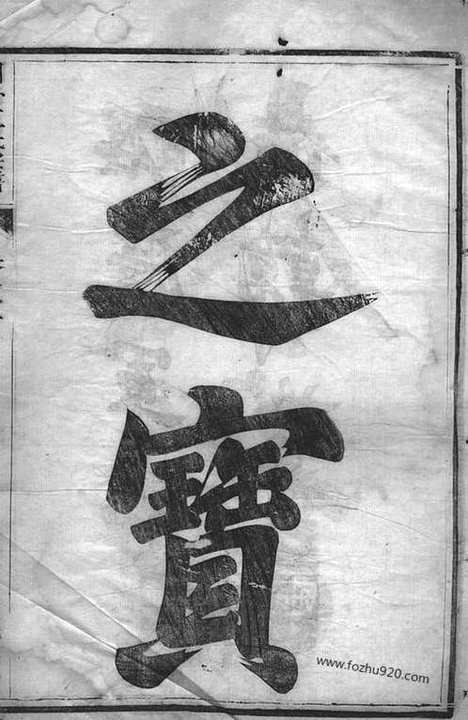 之寶
www.fozhu920.com